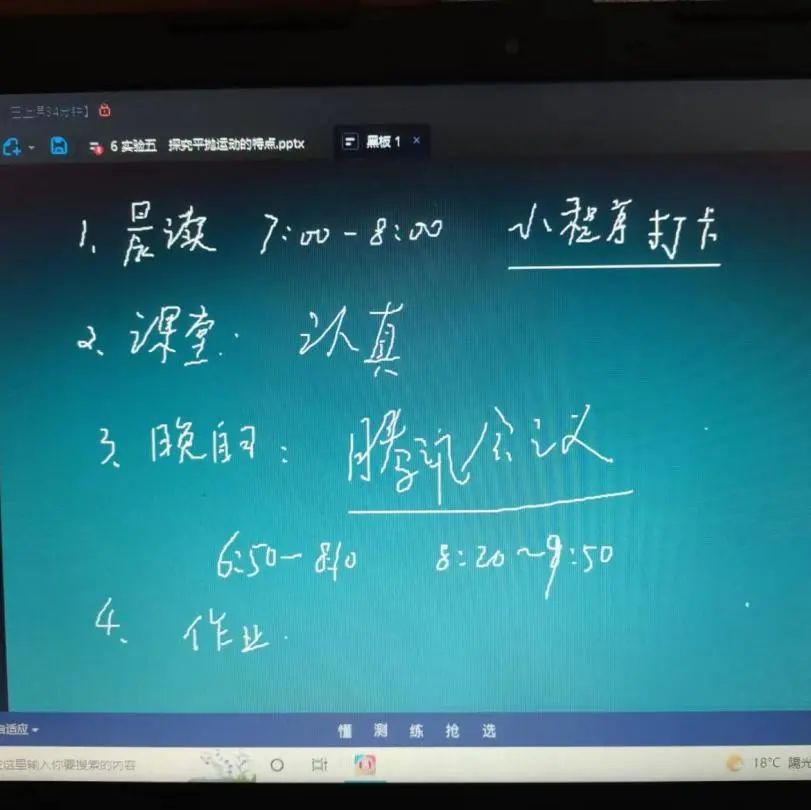 三上第34分钟】
6 实验五 探究平抛运动的特点.pptx 黑板 1 ×
1、晨读 7:00-8:00 小程序打卡
2、课堂. 认真
3、晚自习: 腾讯会议
6:50-8:10 8:20~9:50
4、作业.
自适应
懂 测 练 抢 选
在这里输入你要搜索的内容 18°C 隔光